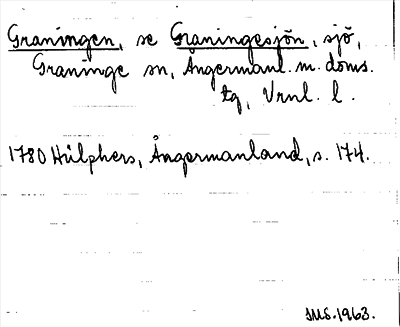 Graningen, se Graningesjön, sjö,
Graninge sn, Ångermanl. m. doms.
tg, Vrnl. l.
1780 Hülphers, Ångermanland, s. 174.
IMS. 1963.